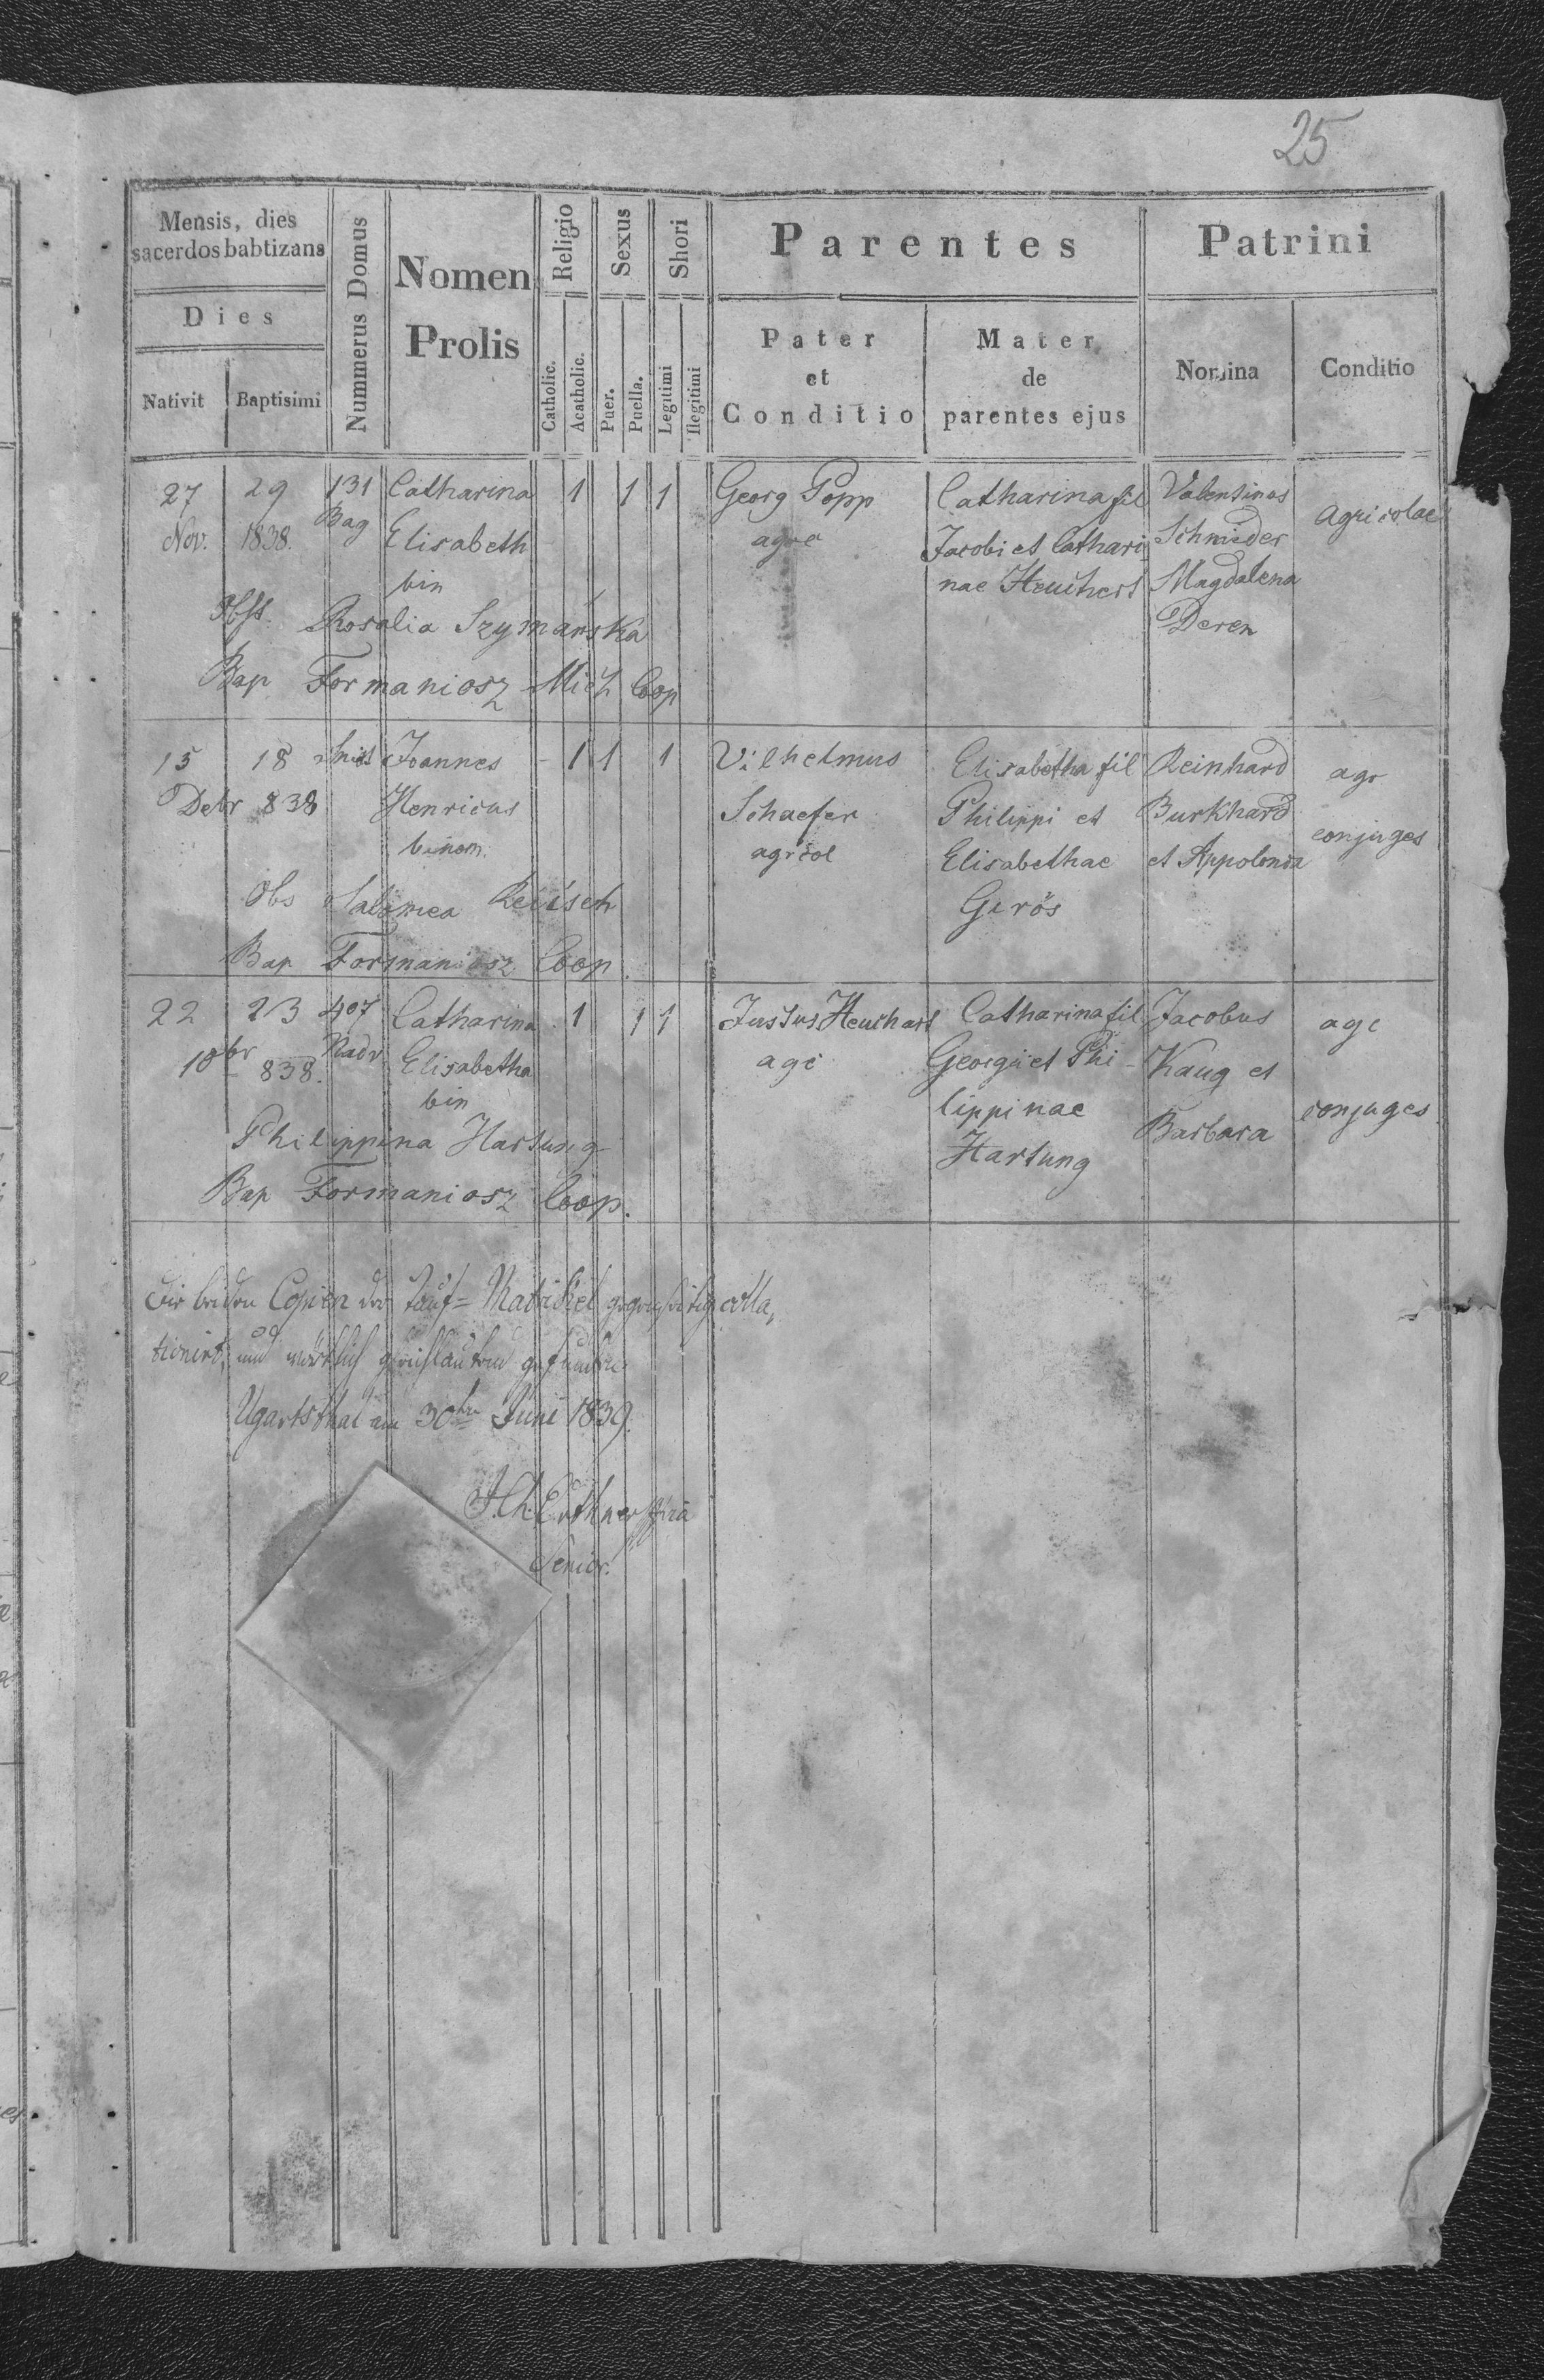 25
Mensis, dies
sacerdos babtizans
Dies
Nativit Baptisimi
Nummerus Domus
Nomen
Prolis
Religio
Catholic.
Acatholic.
Sexus
Puer.
Puella.
Shori
Legitimi
Ilegitimi
Parentes
Pater
et
Conditio
Mater
de
parentes ejus
Patrini
Nomina
Conditio
27 29 131 Catharina 1 1 1 Georg Popp Catharina fil Valentinos agricolae
Nov. 1838. Bag Elisabeth agre Jacobi et Cathari Schmieder
bin nae Heuchert Magdalena
Obst. Rosalia Szymańska Deren
Bap Formaniosz Mich Coop
15 18 Joannes - 1 1 1 Vilhelmus Elisabetha fil Reinhard agr
Debr 838 Henricus Schaefer Philippi et Burkhard conjuges
binom. agricol Elisabethae et Appolonia
Obs Salomea Reiisch Gerös
Bap Formaniosz Coop.
22 23 407 Catharina 1 1 1 Justus Heuchart Catharina fil Jacobus agc
10br 838. Nadr Elisabetha agc Georgii et Phi- Kaug et
bin lippinae Barbara conjuges
Philippina Hartung Hartung
Bap Formaniosz Coop.
Die beiden Copien der Tauf-Matrickel gegenseitig colla,
tionirt, und wirklich gleichlautend gefunden
Ugartsthal am 30ten Juni 1839.
Senior.